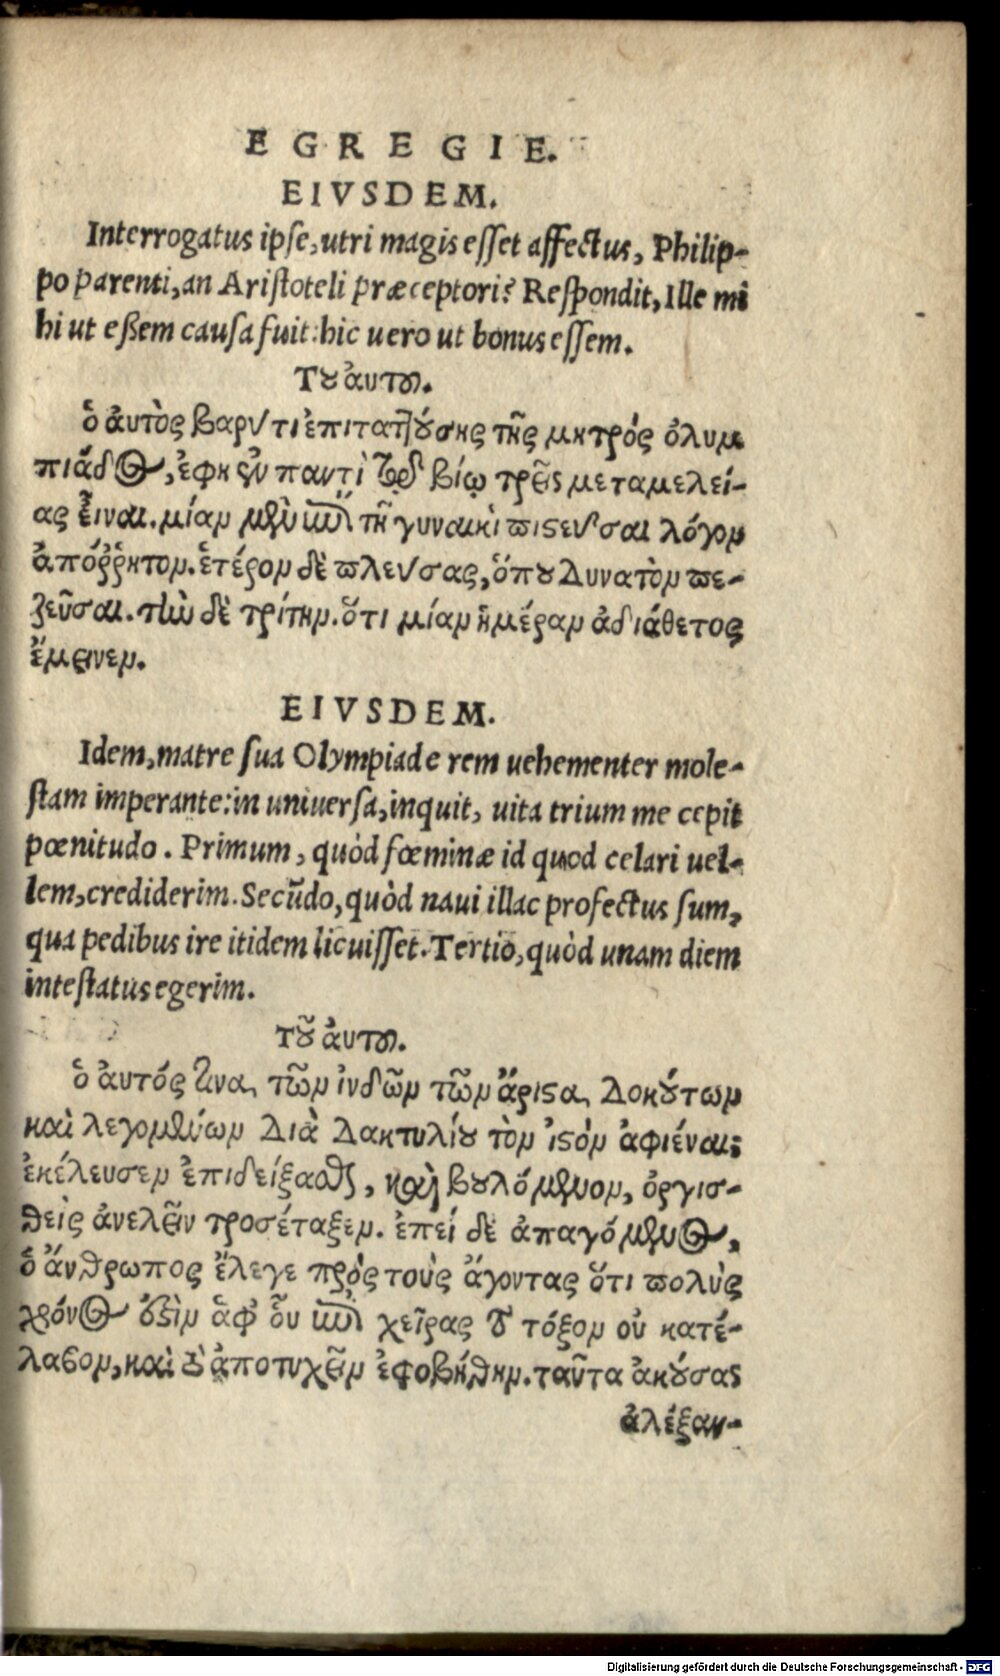 EGREGIE.
EIVSDEM.
Interrogatus ipse, utri magis esset affectus, Philip-
po parenti, an Aristoteli præceptori? Respondit, Ille mi
hi ut eßem causa fuit: hic uero ut bonus essem.
Τοῦ ἀυτοῦ.
ὁ ἀυτὸς βαρύ τι ἐπιταττούσης τῆς μητρός ὀλυμ
πιάδος, ἐφη ἐν παντὶ τῷ βίῳ τρεῖς μεταμελεί-
ας εἶναι. μίαν μὲν ἐπὶ τῇ γυναικὶ πιστεύσαι λόγον
ἀπόῤῥητον. ἑτέρον δὲ πλεύσας, ὅπου δυνατὸν πε-
ζεῦσαι. τὴν δὲ τρίτην. ὅτι μίαν ἡμέραν ἀδιάθετος
ἔμεινεν.
EIVSDEM.
Idem, matre sua Olympiade rem uehementer mole-
stam imperante: in uniuersa, inquit, uita trium me cepit
pœnitudo. Primum, quòd fœminæ id quod celari uel-
lem, crediderim. Secũdo, quòd naui illac profectus sum,
qua pedibus ire itidem licuisset. Tertio, quòd unam diem
intestatus egerim.
τοῦ ἀυτοῦ.
ὁ ἀυτός τινα τῶν ἰνδῶν τῶν ἄριστα δοκούτων
καὶ λεγομένων διὰ δακτυλίου τὸν ἰστὸν ἀφιέναι;
ἐκέλευσεν ἐπιδείξασθαι, καὶ βουλόμενον, ὀργισ-
θεὶς ἀνελεῖν προσέταξεν. ἐπεί δὲ ἀπαγόμενος,
ὁ ἄνθρωπος ἔλεγε πρὸς τοὺς ἄγοντας ὅτι πολὺς
χρόνος ἐστὶν ἀφ' οὗ ἐπὶ χεῖρας τὸ τόξον οὐ κατέ-
λαβον, καὶ τὸ ἀποτυχεῖν ἐφοβήθην. ταῦτα ἀκούσας
ἀλέξαν-
Digitalisierung gefördert durch die Deutsche Forschungsgemeinschaft - DFG